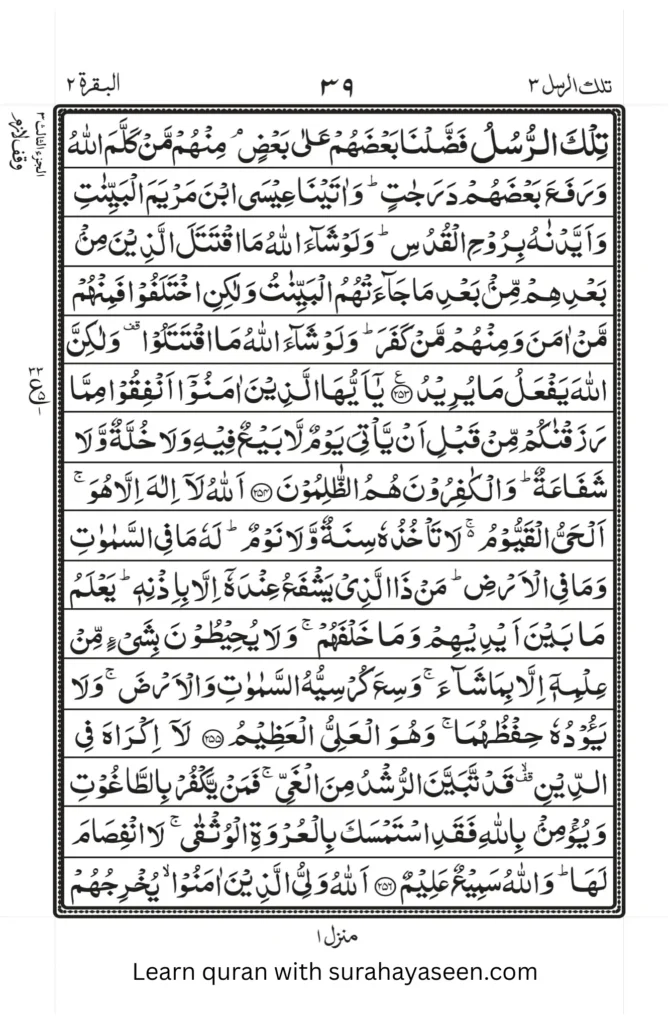 تلك الرسل ٣ ٣٩ البقرة ٢
تِلْكَ الرُّسُلُ فَضَّلْنَا بَعْضَهُمْ عَلٰى بَعْضٍ ۘ مِنْهُمْ مَّنْ كَلَّمَ اللّٰهُ
وَرَفَعَ بَعْضَهُمْ دَرَجٰتٍ ؕ وَاٰتَيْنَا عِيْسَى ابْنَ مَرْيَمَ الْبَيِّنٰتِ
وَاَيَّدْنٰهُ بِرُوْحِ الْقُدُسِ ؕ وَلَوْ شَآءَ اللّٰهُ مَا اقْتَتَلَ الَّذِيْنَ مِنْۢ
بَعْدِهِمْ مِّنْۢ بَعْدِ مَا جَآءَتْهُمُ الْبَيِّنٰتُ وَلٰكِنِ اخْتَلَفُوْا فَمِنْهُمْ
مَّنْ اٰمَنَ وَمِنْهُمْ مَّنْ كَفَرَ ؕ وَلَوْ شَآءَ اللّٰهُ مَا اقْتَتَلُوْا ۟ وَلٰكِنَّ
اللّٰهَ يَفْعَلُ مَا يُرِيْدُ ﴿۲۵۳﴾ ع يٰۤاَيُّهَا الَّذِيْنَ اٰمَنُوْۤا اَنْفِقُوْا مِمَّا
رَزَقْنٰكُمْ مِّنْ قَبْلِ اَنْ يَّاْتِيَ يَوْمٌ لَّا بَيْعٌ فِيْهِ وَلَا خُلَّةٌ وَّلَا
شَفَاعَةٌ ؕ وَالْكٰفِرُوْنَ هُمُ الظّٰلِمُوْنَ ﴿۲۵۴﴾ اَللّٰهُ لَاۤ اِلٰهَ اِلَّا هُوَ ۚ
اَلْحَيُّ الْقَيُّوْمُ ۚ لَا تَاْخُذُهٗ سِنَةٌ وَّلَا نَوْمٌ ؕ لَهٗ مَا فِي السَّمٰوٰتِ
وَمَا فِي الْاَرْضِ ؕ مَنْ ذَا الَّذِيْ يَشْفَعُ عِنْدَهٗۤ اِلَّا بِاِذْنِهٖ ؕ يَعْلَمُ
مَا بَيْنَ اَيْدِيْهِمْ وَمَا خَلْفَهُمْ ۚ وَلَا يُحِيْطُوْنَ بِشَيْءٍ مِّنْ
عِلْمِهٖۤ اِلَّا بِمَا شَآءَ ۚ وَسِعَ كُرْسِيُّهُ السَّمٰوٰتِ وَالْاَرْضَ ۚ وَلَا
يَـُٔوْدُهٗ حِفْظُهُمَا ۚ وَهُوَ الْعَلِيُّ الْعَظِيْمُ ﴿۲۵۵﴾ لَاۤ اِكْرَاهَ فِي
الدِّيْنِ ۟ۙ قَدْ تَّبَيَّنَ الرُّشْدُ مِنَ الْغَيِّ ۚ فَمَنْ يَّكْفُرْ بِالطَّاغُوْتِ
وَيُؤْمِنْۢ بِاللّٰهِ فَقَدِ اسْتَمْسَكَ بِالْعُرْوَةِ الْوُثْقٰى ۚ لَا انْفِصَامَ
لَهَا ؕ وَاللّٰهُ سَمِيْعٌ عَلِيْمٌ ﴿۲۵۶﴾ اَللّٰهُ وَلِيُّ الَّذِيْنَ اٰمَنُوْا ۙ يُخْرِجُهُمْ
الجزء الثالث ٣
وقف لازم
منزل ١
Learn quran with surahayaseen.com